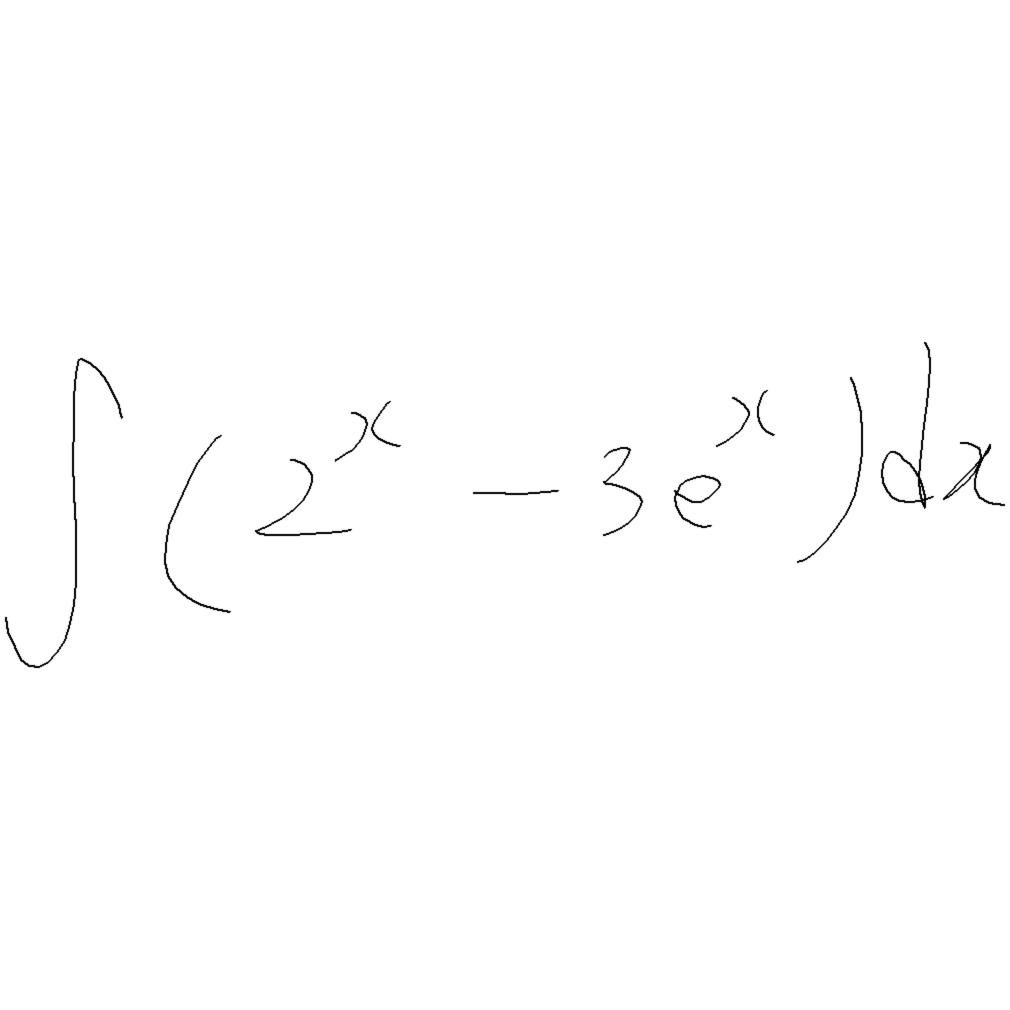 ∫(2^x − 3e^x)dx